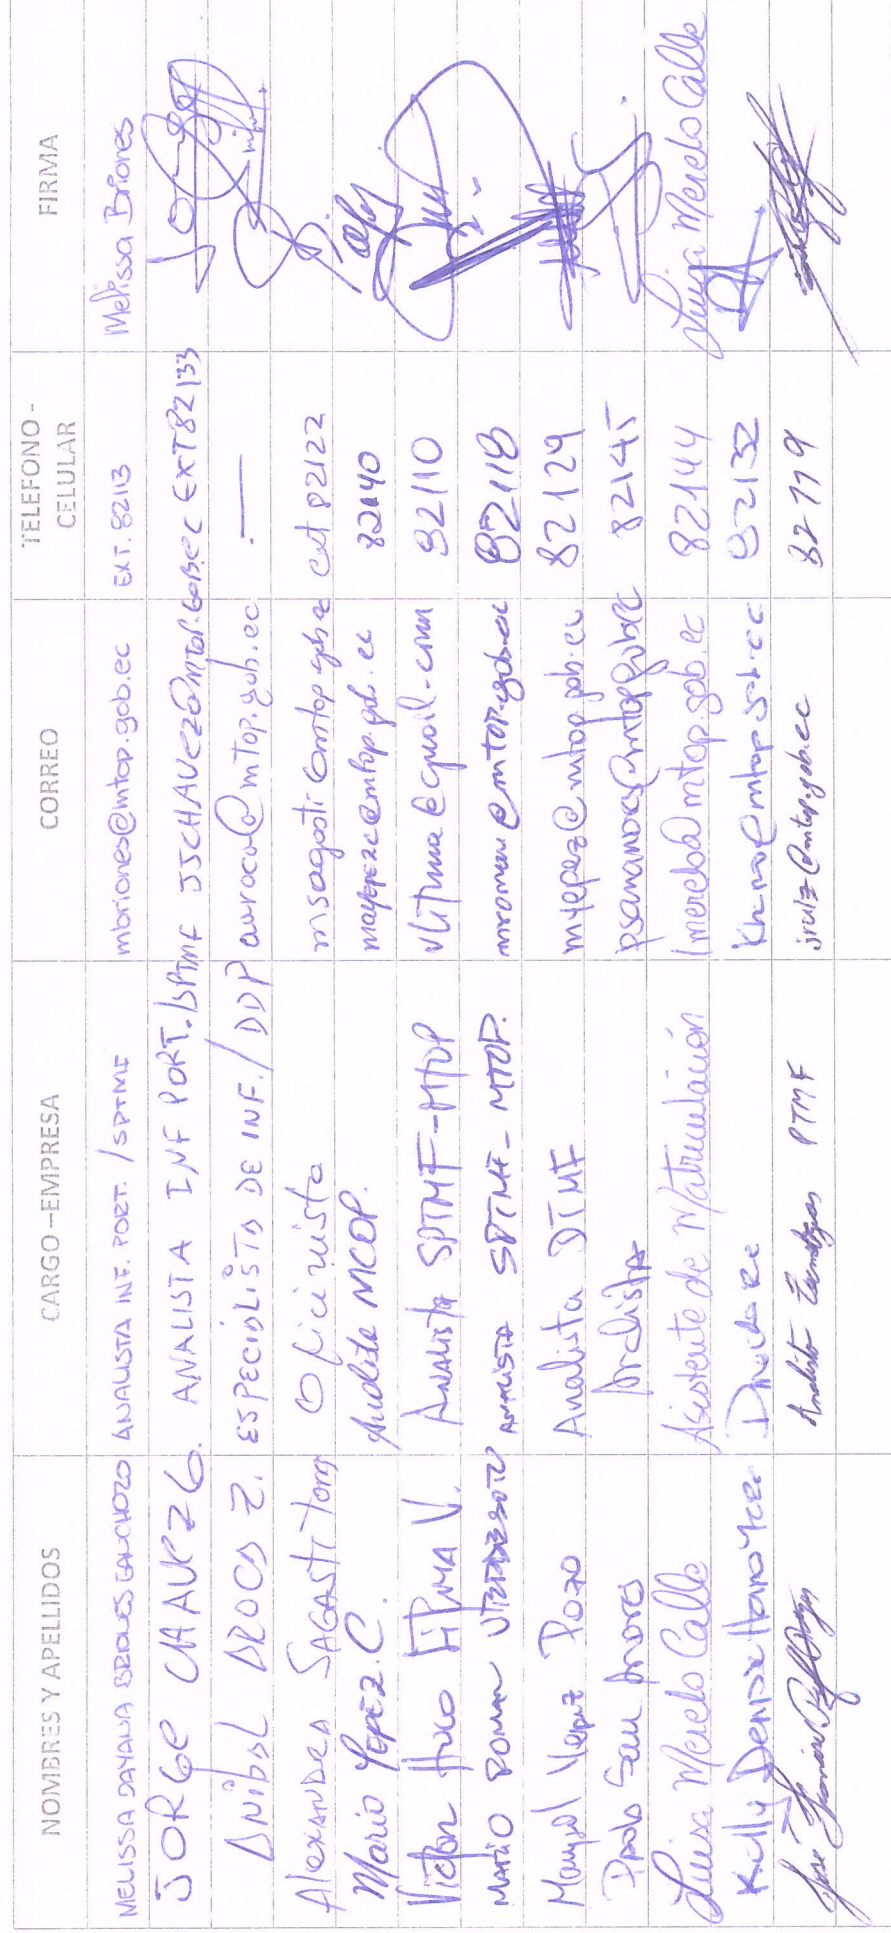 NOMBRES Y APELLIDOS CARGO –EMPRESA CORREO TELEFONO - CELULAR FIRMA
MELISSA DAYANA BRIONES ANALISTA INF. PORT. / SPTMF mbriones@mtop.gob.ec EXT. 82113 Melissa Briones
JORGE CHAVEZ G. ANALISTA INF PORT./SPTMF JSCHAVEZ@MTOP.GOB.EC EXT 82133
ANIBAL AROCA Z. ESPECIALISTA DE INF./DDP aaroca@mtop.gob.ec —
Alexandra SAGASTI Oficinista msagasti@mtop.gob.ec ext 82122
Mario YEPEZ. C. Analista MCOP. mayepezc@mtop.gob.ec 82140
Victor Hugo LITUMA V. ANALISTA SPTMF-MTOP vlituma@gmail.com 82110
MARIO ROMAN ANALISTA SPTMF- MTOP. mroman@mtop.gob.ec 82118
Yepez POZO Analista DTMF myepez@mtop.gob.ec 82129
Pablo San Andres Analista 82145
Luisa Merelo Calle Asistente de Matriculación lmerelo@mtop.gob.ec 82144 Luisa Merelo Calle
Kelly Denisse Haro 82132
José Analista PTMF jruiz@mtop.gob.ec 82119